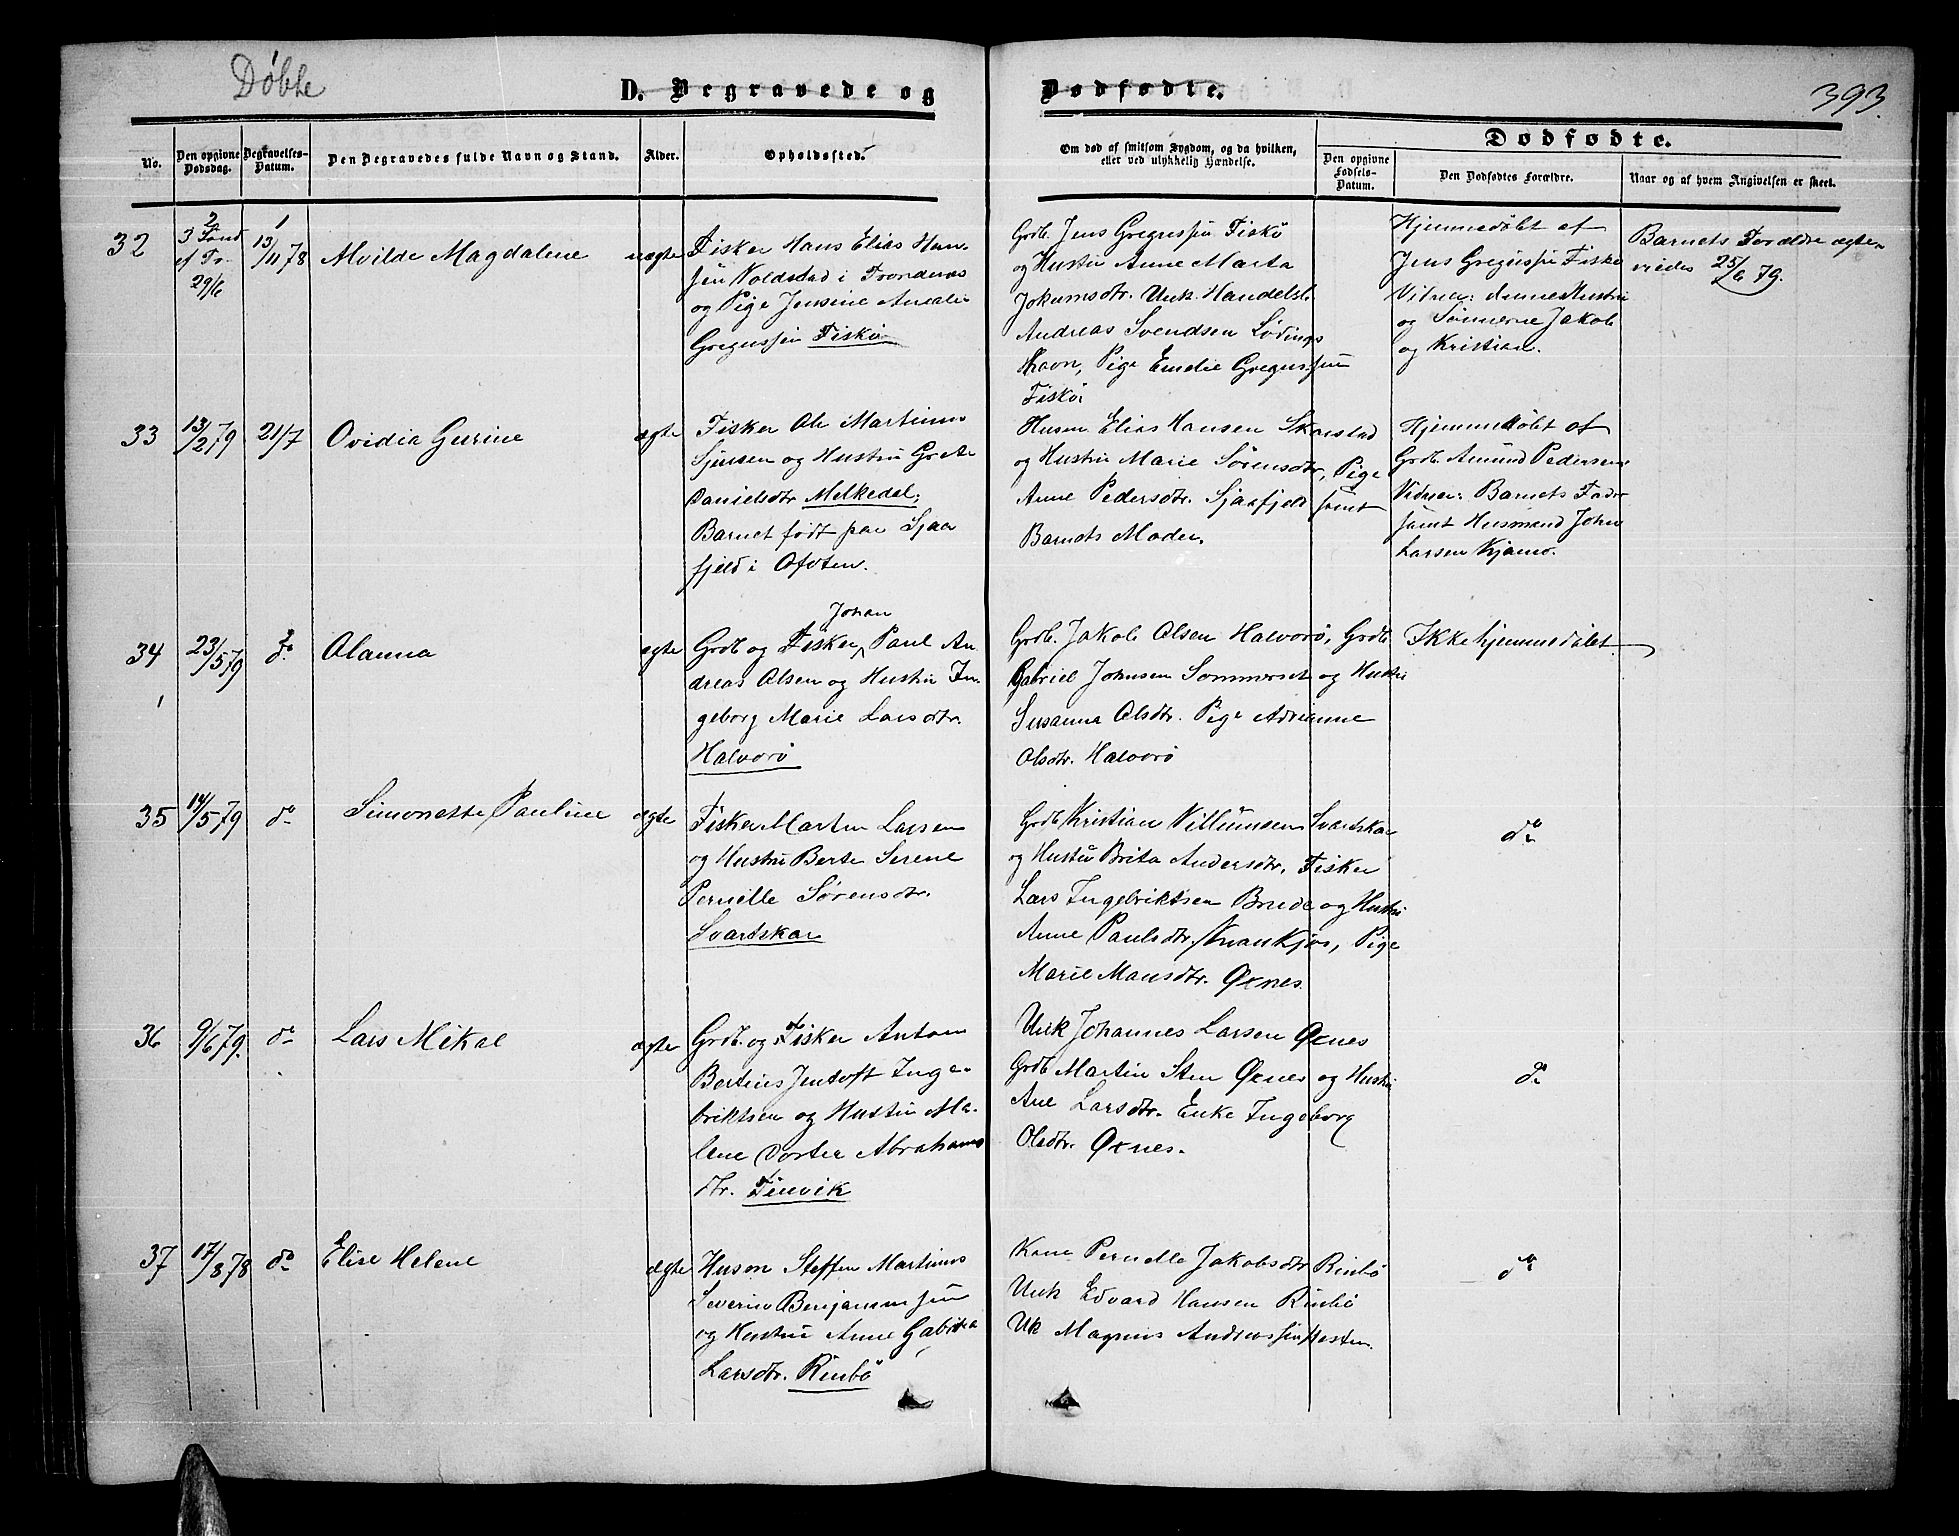 Døbte
D. Begravede og Dødfødte.
393.
No.
Den opgivne Dødsdag.
Begravelses-Datum.
Den Begravedes fulde Navn og Stand.
Alder.
Opholdssted.
Om død af smitsom Sygdom, og da hvilken,
eller ved ulykkelig Hændelse.
Dødfødte.
Den opgivne Fødsels-Datum.
Den Dødfødtes Forældre.
Naar og af hvem Angivelsen er skeet.
32
2
3 Sønd
ef Tr.
29/6
1
13/11 78
Mvilde Magdalene
uægte
Fisker Hans Elias Han-
sen Voldstad i Trondenes
og Pige Jensine Amalie
Gregussen Fiskø
Grdb. Jens Gregussen Fiskø
og Hustru Anne Marta
Jokumsdtr. Unk. Handelsb.
Andreas Svendsen Lødings
Havn, Pige Emelie Gregussen
Fiskø
Hjemmedøbt af
Jens Gregussen Fiskø
Vidner: Anne Hustru
og Sønnerne Jakob
og Kristian.
Barnets Forældre ægte-
viedes 25/6 79.
33
13/2 79
21/7
Ovidia Gurine
ægte
Fisker Ole Martinus
Sjursen og Hustru Grete
Danielsdtr Melkedal;
Barnet født paa Sjaa
fjeld i Ofoten.
Husm Elias Hansen Skarstad
og Hustru Marie Sørensdtr, Pige
Anne Pedersdtr. Sjaafjeld samt
Barnets Moder.
Hjemmedøbt af
Grdb. Amund Pedersen
Vidner: Barnets Fader
samt Husmand John
Larsen Kjamo.
34
23/5 79
do
Olanna
ægte
Johan
Grdb og Fisker Paul An-
dreas Olsen og Hustru In-
geborg Marie Larsdtr.
Halvorø
Grdb. Jakob Olsen Halvorø, Grdb
Gabriel Johnsen Sommerset og Hustru
Susanna Olsdtr. Pige Adrianne
Olsdtr. Halvorø
Ikke hjemmedøbt.
35
14/5 79
do
Simonette Pauline
ægte
Fisker Martin Larsen
og Hustru Berte Serene
Pernille Sørensdtr.
Svartskar
Grdb Kristian Villumsen Svartskar
og Hustru Brita Andersdtr. Fisker
Lars Ingebriktsen Brude og Hustru
Anne Paulsdtr, Pige
Marie Mansdtr. Øxnes.
do
36
9/6 79.
do
Lars Mikal
ægte
Grdb. og Fisker Anton
Bertius Jentoft Inge-
briktsen og Hustru Ma-
lene Dortea Abrahams
dtr. Finvik
Unk Johannes Larsen Øxnes
Grdb Martin Sten Øxnes og Hustru
Ane Larsdtr. Enke Ingeborg
Olsdtr. Øxnes.
do
37
17/8 78
do
Elise Helene
ægte
Husm Steffen Martinus
Severin Benjaminsen
og Hustru Anne Gabriela
Larsdtr. Rinbø
Kone Pernelle Jakobsdtr Rinbø
Unk Edvard Hansen Rinbø
Uk Magnus Andreassen Hesten.
do